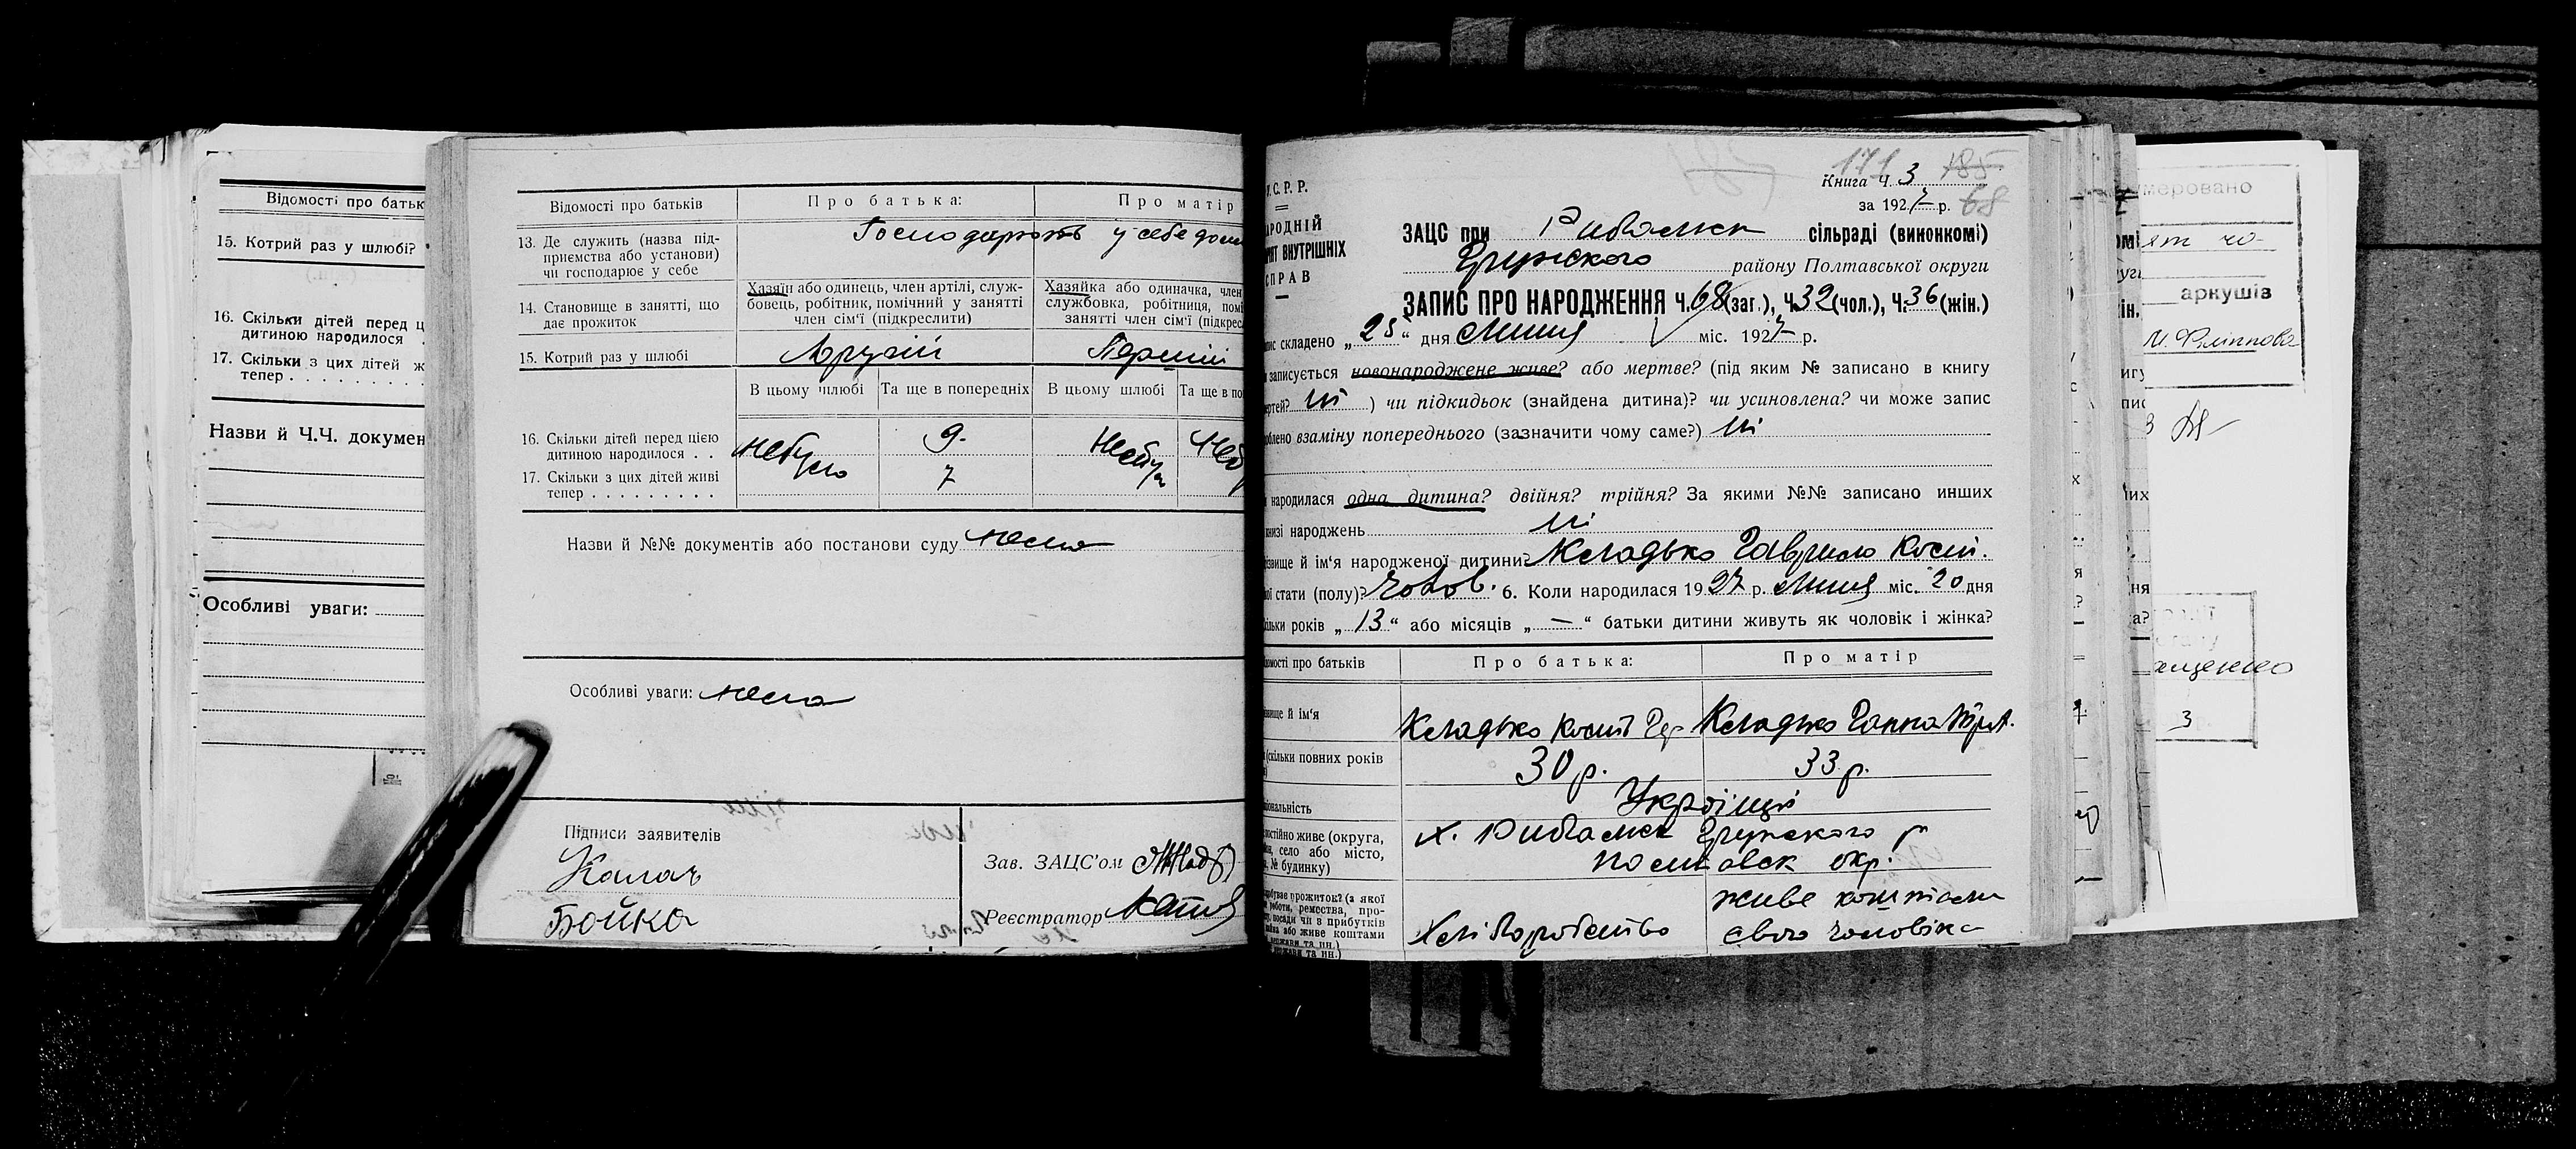 Відомості про батьк
15. Котрий раз у шлюбі?
16. Скільки дітей перед ц
дитиною народилося .
17. Скільки з цих дітей ж
тепер . . . . . . . . .
Назви й Ч.Ч. докумен
Особливі уваги:
Відомості про батьків
Про батька:
Про матір
13. Де служить (назва під-
приємства або установи)
чи господарює у себе
Господарють у себе дома
14. Становище в занятті, що
дає прожиток
Хазяїн або одинець, член артілі, служ-
бовець, робітник, помічний у занятті
член сім'ї (підкреслити)
Хазяйка або одиначка, член
службовка, робітниця, помі
занятті член сім'ї (підкресл
15. Котрий раз у шлюбі
Другій
Перший
В цьому шлюбі
Та ще в попередніх
В цьому шлюбі
Та ще в по
16. Скільки дітей перед цією
дитиною народилося . .
небуло
9
Небул
Неб
17. Скільки з цих дітей живі
тепер . . . . . . . . .
7
Назви й №№ документів або постанови суду нема
Особливі уваги: нема
Підписи заявителів
Калач
Бойка
Зав. ЗАЦС'ом
Реєстратор
С. Р. Р.
РОДНІЙ
ВНУТРІШНІХ
СПРАВ
171 185
Книга ч. 3
за 1927 р. 68
ЗАЦС при Рибальск сільраді (виконкомі)
Грунського району Полтавської округи
ЗАПИС ПРО НАРОДЖЕННЯ ч. 68 (заг.), ч. 32 (чол.), ч. 36 (жін.)
пис складено „25" дня Липня міс. 1927 р.
записується новонароджене живе? або мертве? (під яким № записано в книгу
ертей? ні ) чи підкидьок (знайдена дитина)? чи усиновлена? чи може запис
облено взаміну попереднього (зазначити чому саме?) ні
народилася одна дитина? двійня? трійня? За якими №№ записано инших
книзі народжень ні
звище й ім'я народженої дитини? Кладько Гаврило Кост.
ої стати (полу)? Чолов. 6. Коли народилася 1927 р. Липня міс. 20 дня
кільки років „13" або місяців „—" батьки дитини живуть як чоловік і жінка?
домості про батьків
Про батька:
Про матір
звище й ім'я
Кладько Кост
Кладько Ганна
(скільки повних років
30 р.
33 р.
ціональність
Українці
постійно живе (округа,
село або місто,
№ будинку)
х. Рибальск Грунского р
Полтавск окр.
добуває прожиток? (з якої
роботи, ремества, про-
посади чи з прибутків
або живе коштами
держави та ин.)
Хліборобство
живе коштами
свого чоловіка
меровано
аркушів
М. Філіппова
3